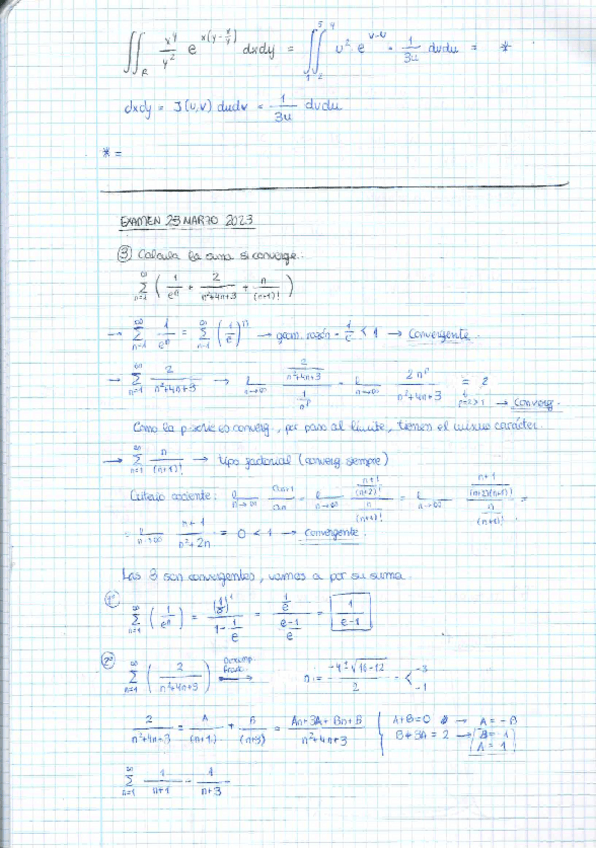 ∬_R x⁴/y² e^{x(y-x/y)} dxdy = ∬ u² e^{v-u} · 1/3u dvdu = *
dxdy = J(u,v) dudv = 1/3u dvdu
* =
EXAMEN 23 MARZO 2023
③ Calcula la suma si converge:
∑_{n=1}^∞ ( 1/eⁿ + 2/(n²+4n+3) + n/(n+1)! )
→ ∑_{n=1}^∞ 1/eⁿ = ∑_{n=1}^∞ (1/e)ⁿ → geom. razón = 1/e < 1 → Convergente.
→ ∑_{n=1}^∞ 2/(n²+4n+3) → L_{n→∞} (2/(n²+4n+3))/(1/nᵖ) = L_{n→∞} 2nᵖ/(n²+4n+3) = 2 p=2>1 → Converg.
Como la p-serie es converg., por paso al límite, tienen el mismo carácter.
→ ∑_{n=1}^∞ n/(n+1)! → tipo factorial (converg siempre)
Criterio cociente: L_{n→∞} a_{n+1}/a_n = L_{n→∞} ((n+1)/(n+2)!)/(n/(n+1)!) = L_{n→∞} ((n+1)/((n+2)(n+1)!))/(n/(n+1)!) =
= L_{n→∞} (n+1)/(n²+2n) = 0 < 1 → Convergente.
Las 3 son convergentes, vamos a por su suma.
1º ∑_{n=1}^∞ (1/eⁿ) = (1/e)¹/(1-1/e) = (1/e)/((e-1)/e) = 1/(e-1)
2º ∑_{n=1}^∞ ( 2/(n²+4n+3) ) Descomp. Fracc. → n = (-4±√(16-12))/2 = < -3 -1
2/(n²+4n+3) = A/(n+1) + B/(n+3) = (An+3A+Bn+B)/(n²+4n+3) { A+B=0 → A=-B
B+3A=2 → B=-1 A=1
∑_{n=1}^∞ 1/(n+1) - 1/(n+3)